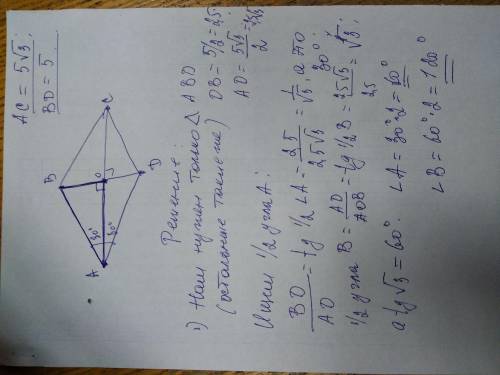 AC = 5√3
BD = 5
B
C
A
D
O
30°
30°
Решение:
1) Нам нужен только △ ABO
(остальные такие же)
OB = 5/2 = 2,5
AO = 5√3/2 = 2,5√3
Ищем 1/2 угла A:
BO/AO = tg 1/2 ∠A = 2,5/2,5√3 = 1/√3; а это 30°
1/2 угла B = AO/
= tg 1/2 B = 2,5√3/2,5 = √3;
a tg √3 = 60°
∠A = 30°·2 = 60°
∠B = 60°·2 = 120°